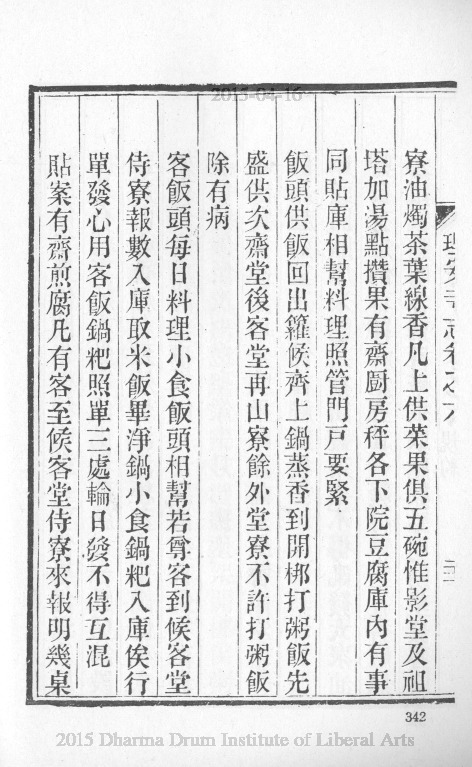 2015-04-16
寮油燭茶葉線香凡上供菜果俱五碗惟影堂及祖
塔加湯點攢果有齋厨房秤各下院豆腐庫內有事
同貼庫相幫料理照管門戸要緊
飯頭供飯回出籮候齊上鍋蒸香到開梆打粥飯先
盛供次齋堂後客堂再山寮餘外堂寮不許打粥飯
除有病
客飯頭每日料理小食飯頭相幫若尊客到候客堂
侍寮報數入庫取米飯畢淨鍋小食鍋粑入庫俟行
單發心用客飯鍋粑照單三處輪日發不得互混
貼案有齋煎腐凡有客至候客堂侍寮來報明幾桌
342
2015 Dharma Drum Institute of Liberal Arts